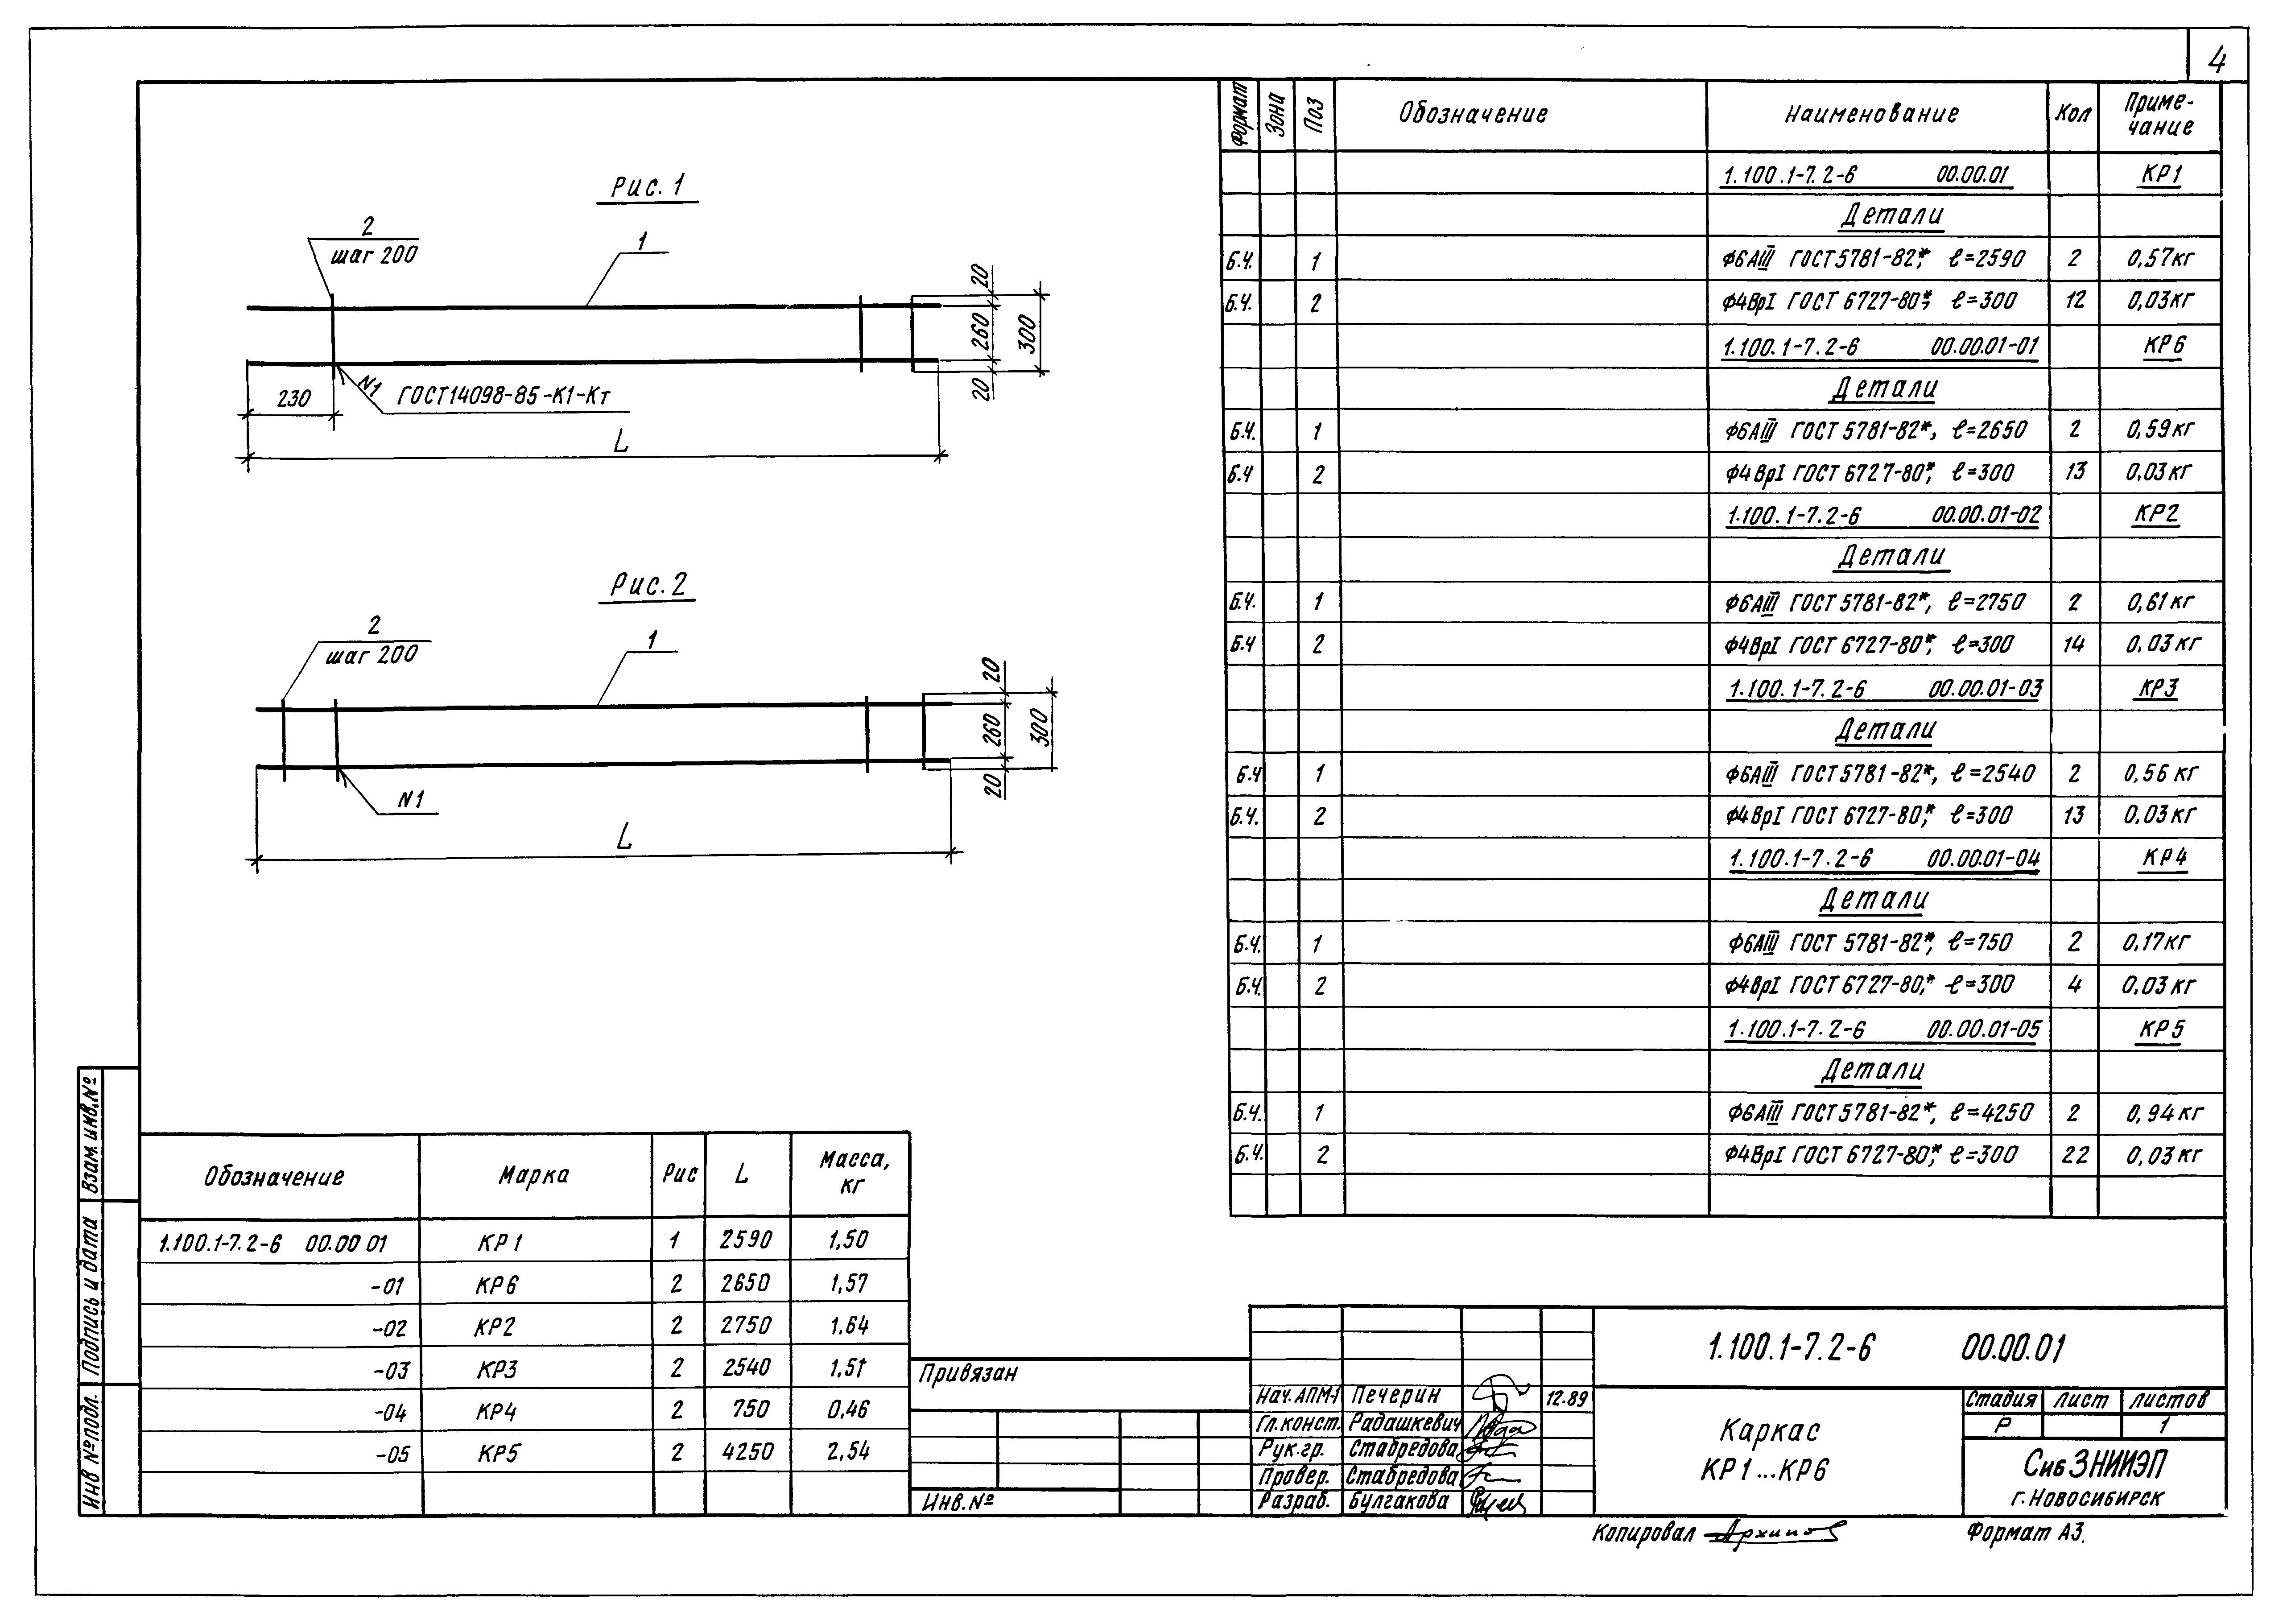 4
Рис. 1
2
шаг 200
1
20
260
300
20
230
N1
ГОСТ14098-85-К1-Кт
L
Рис. 2
2
шаг 200
1
20
260
300
20
N1
L
Формат Зона Поз Обозначение Наименование Кол Приме-
чание
1.100.1-7.2-6 00.00.01 КР1
Детали
Б.Ч. 1 Ф6АIII ГОСТ 5781-82*, ℓ=2590 2 0,57кг
Б.Ч. 2 Ф4ВрI ГОСТ 6727-80*, ℓ=300 12 0,03кг
1.100.1-7.2-6 00.00.01-01 КР6
Детали
Б.Ч. 1 Ф6АIII ГОСТ 5781-82*, ℓ=2650 2 0,59кг
Б.Ч 2 Ф4ВрI ГОСТ 6727-80*, ℓ=300 13 0,03кг
1.100.1-7.2-6 00.00.01-02 КР2
Детали
Б.Ч. 1 Ф6АIII ГОСТ 5781-82*, ℓ=2750 2 0,61кг
Б.Ч 2 Ф4ВрI ГОСТ 6727-80*, ℓ=300 14 0,03кг
1.100.1-7.2-6 00.00.01-03 КР3
Детали
Б.Ч 1 Ф6АIII ГОСТ 5781-82*, ℓ=2540 2 0,56 кг
Б.Ч. 2 Ф4ВрI ГОСТ 6727-80,* ℓ=300 13 0,03кг
1.100.1-7.2-6 00.00.01-04 КР4
Детали
Б.Ч. 1 Ф6АIII ГОСТ 5781-82*, ℓ=750 2 0,17кг
Б.Ч. 2 Ф4ВрI ГОСТ 6727-80,* ℓ=300 4 0,03 кг
1.100.1-7.2-6 00.00.01-05 КР5
Детали
Б.Ч. 1 Ф6АIII ГОСТ 5781-82*, ℓ=4250 2 0,94 кг
Б.Ч. 2 Ф4ВрI ГОСТ 6727-80*, ℓ=300 22 0,03 кг
Обозначение Марка Рис L Масса,
кг
1.100.1-7.2-6 00.00 01 КР1 1 2590 1,50
-01 КР6 2 2650 1,57
-02 КР2 2 2750 1.64
-03 КР3 2 2540 1,51
-04 КР4 2 750 0,46
-05 КР5 2 4250 2,54
Взам. инв.№
Подпись и дата
Инв №подл.
Привязан
Инв.№
Нач.АПМ-1 Печерин 12.89
Гл.конст. Радашкевич
Рук.гр. Стабредова
Провер. Стабредова
Разраб. Булгакова
1.100.1-7.2-6 00.00.01
Каркас
КР1...КР6
Стадия Лист Листов
Р 1
СибЗНИИЭП
г.Новосибирск
Копировал Архипов
Формат А3.